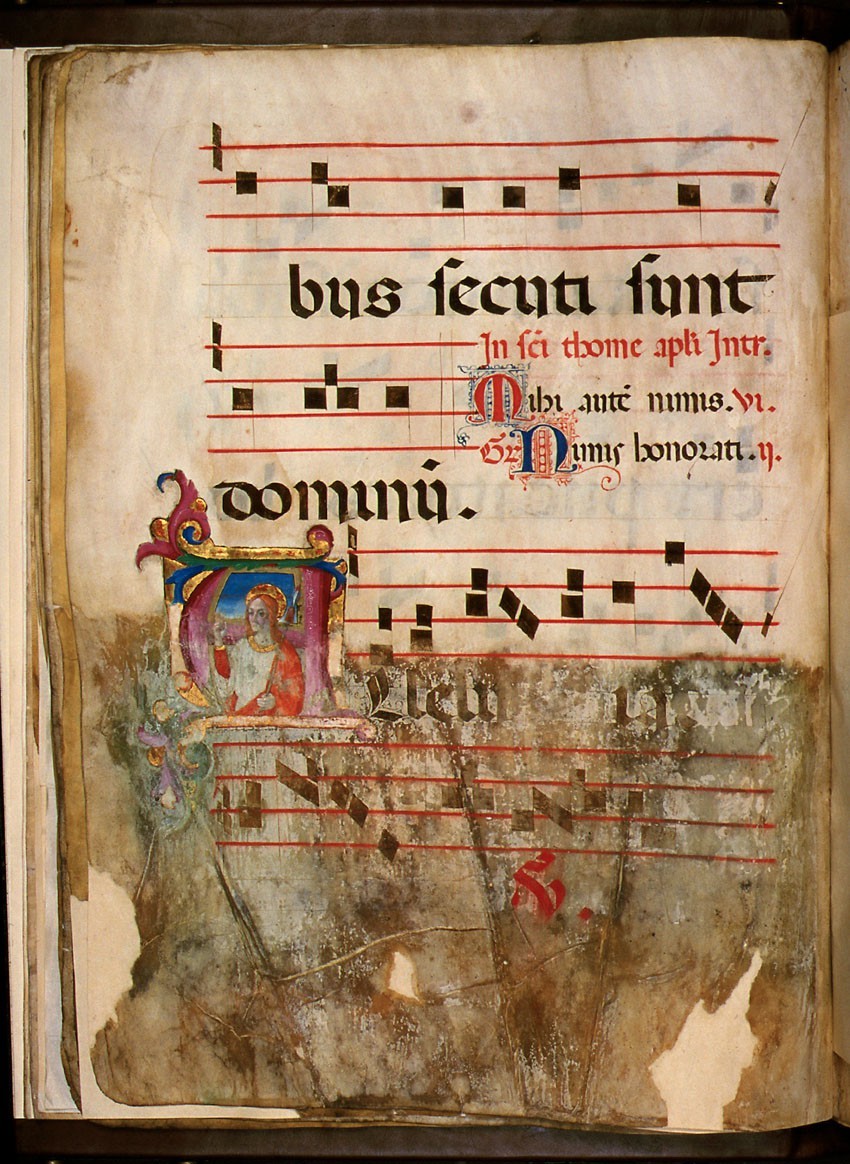 bus secuti sunt
In sc̄i thome apl̄i Intr.
Mihi autē nimis. vi.
Gr Nimis honorati. ij.
dominū.
Alleluia
℣.